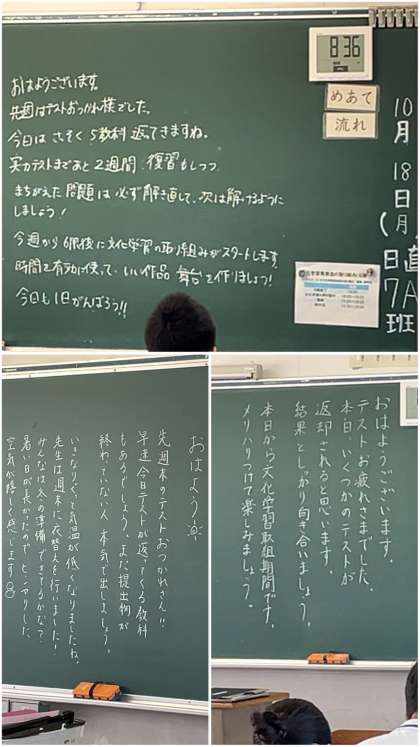 おはようございます。
先週はテストおつかれ様でした。
今日は さっそく 5教科 返ってきますね。
実力テストまであと2週間、復習もしつつ
まちがえた問題は必ず解き直して、次は解けるように
しましょう!
今週から6限後に文化学習の取り組みがスタートします。
時間を有効に使って、いい作品・舞台を作りましょう!
今日も1日がんばろう!!
8:36
めあて
流れ
10月18日(月)
日直
7A班
おはよう
先週末のテストおつかれさん!!
早速今日テストが返ってくる教科
もあるでしょう。まだ提出物が
終わっていない人、本気で出しましょう。
いきなりぐっと気温が低くなりましたね。
先生は週末に衣替えを行いました!
みんなは冬の準備できてるかな?
暑い日が長かったので、ヒンヤリした
空気が嬉しく感じます
おはようございます。
テストお疲れさまでした。
本日、いくつかのテストが
返却されると思います。
結果としっかり向き合いましょう。
本日から文化学習取組期間です。
メリハリつけて楽しみましょう。